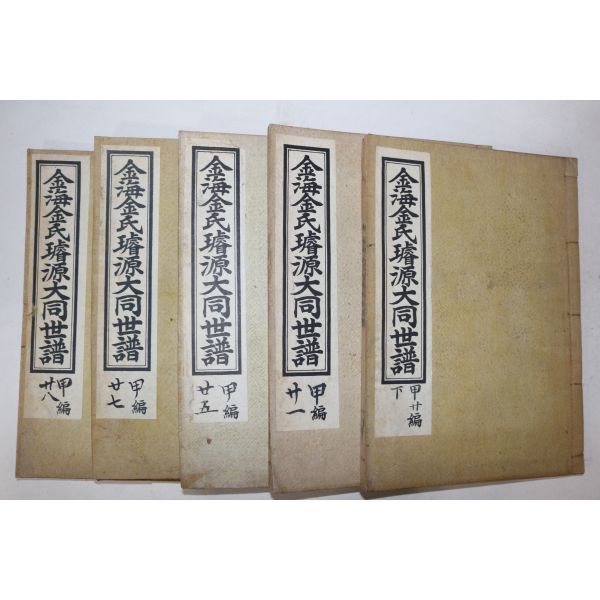 金海金氏璿源大同世譜
甲編
廿八
金海金氏璿源大同世譜
甲編
廿七
金海金氏璿源大同世譜
甲編
廿五
金海金氏璿源大同世譜
甲編
廿一
金海金氏璿源大同世譜
甲廿編
下